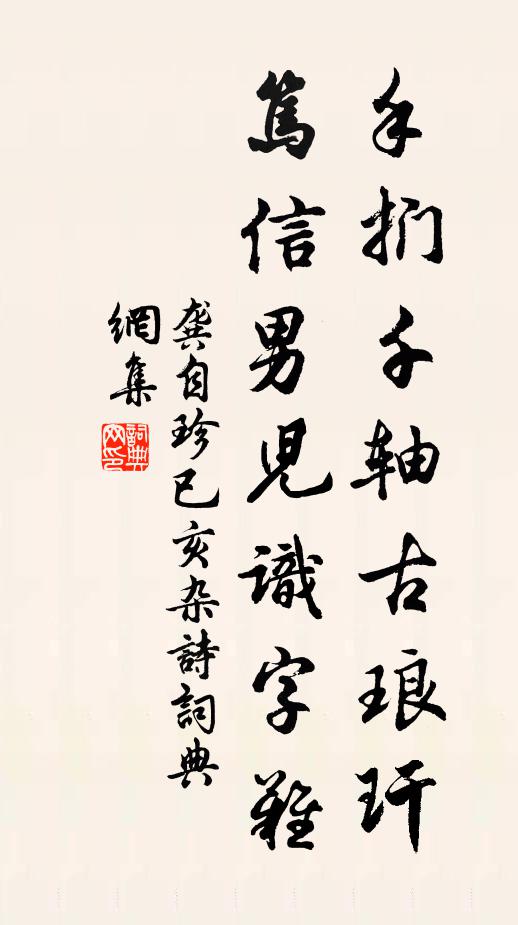 手捫千軸古琅玕
篤信男兒識字難
龔自珍己亥杂詩詞典
網集
詞典
网印